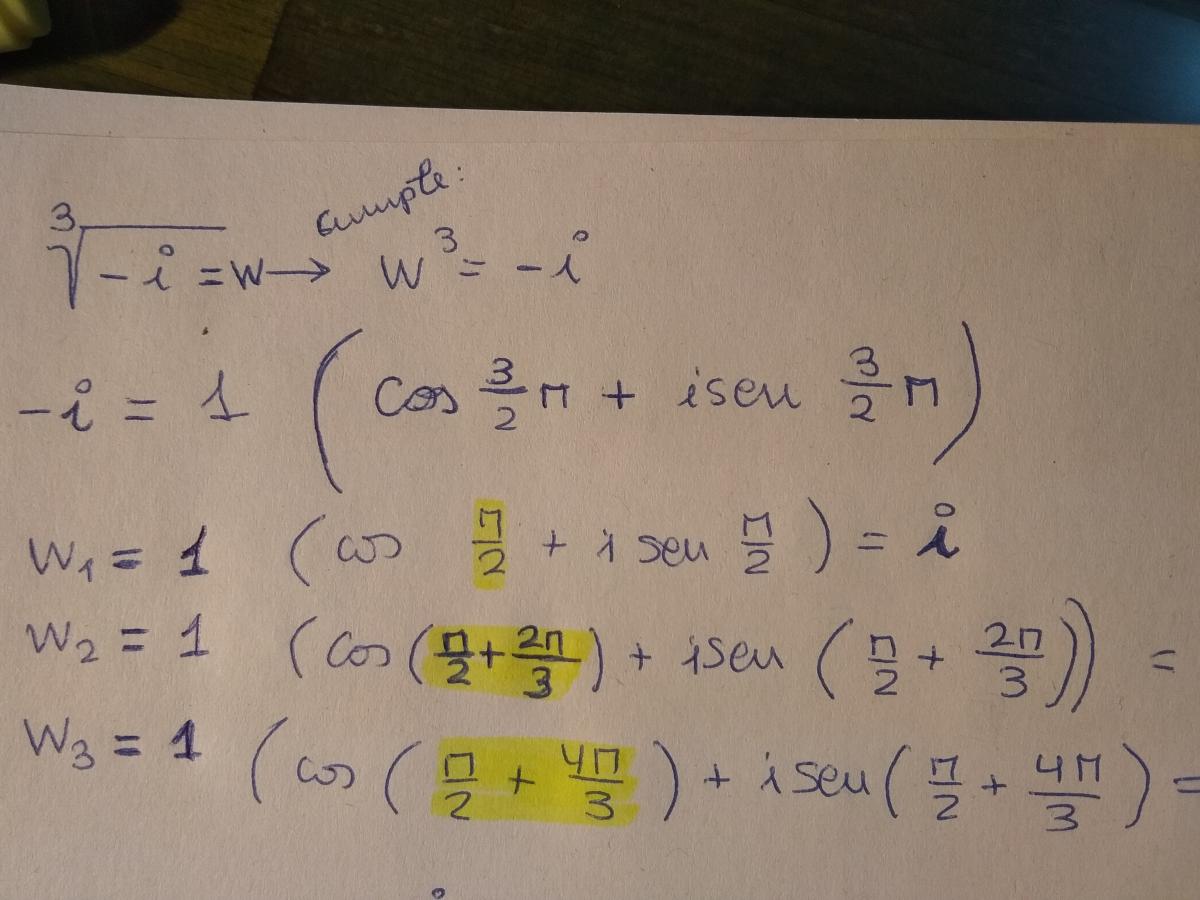 cumple:
∛-i = w → w³ = -i
-i = 1 (cos 3/2 π + i sen 3/2 π)
w₁ = 1 (cos π/2 + i sen π/2) = i
w₂ = 1 (cos(π/2 + 2π/3) + i sen (π/2 + 2π/3)) =
w₃ = 1 (cos (π/2 + 4π/3) + i sen (π/2 + 4π/3) =